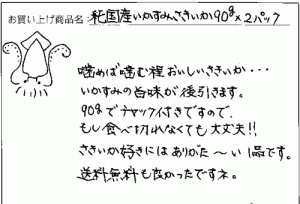 お買い上げ商品名:純国産いかすみさきいか90g×2パック
噛めば噛む程おいしいさきいか・・・
いかすみの旨味が後引きます。
90gでチャック付きですので、
もし食べ切れなくても大丈夫!!
さきいか好きにはありがた~い1品です。
送料無料も良かったですネ。